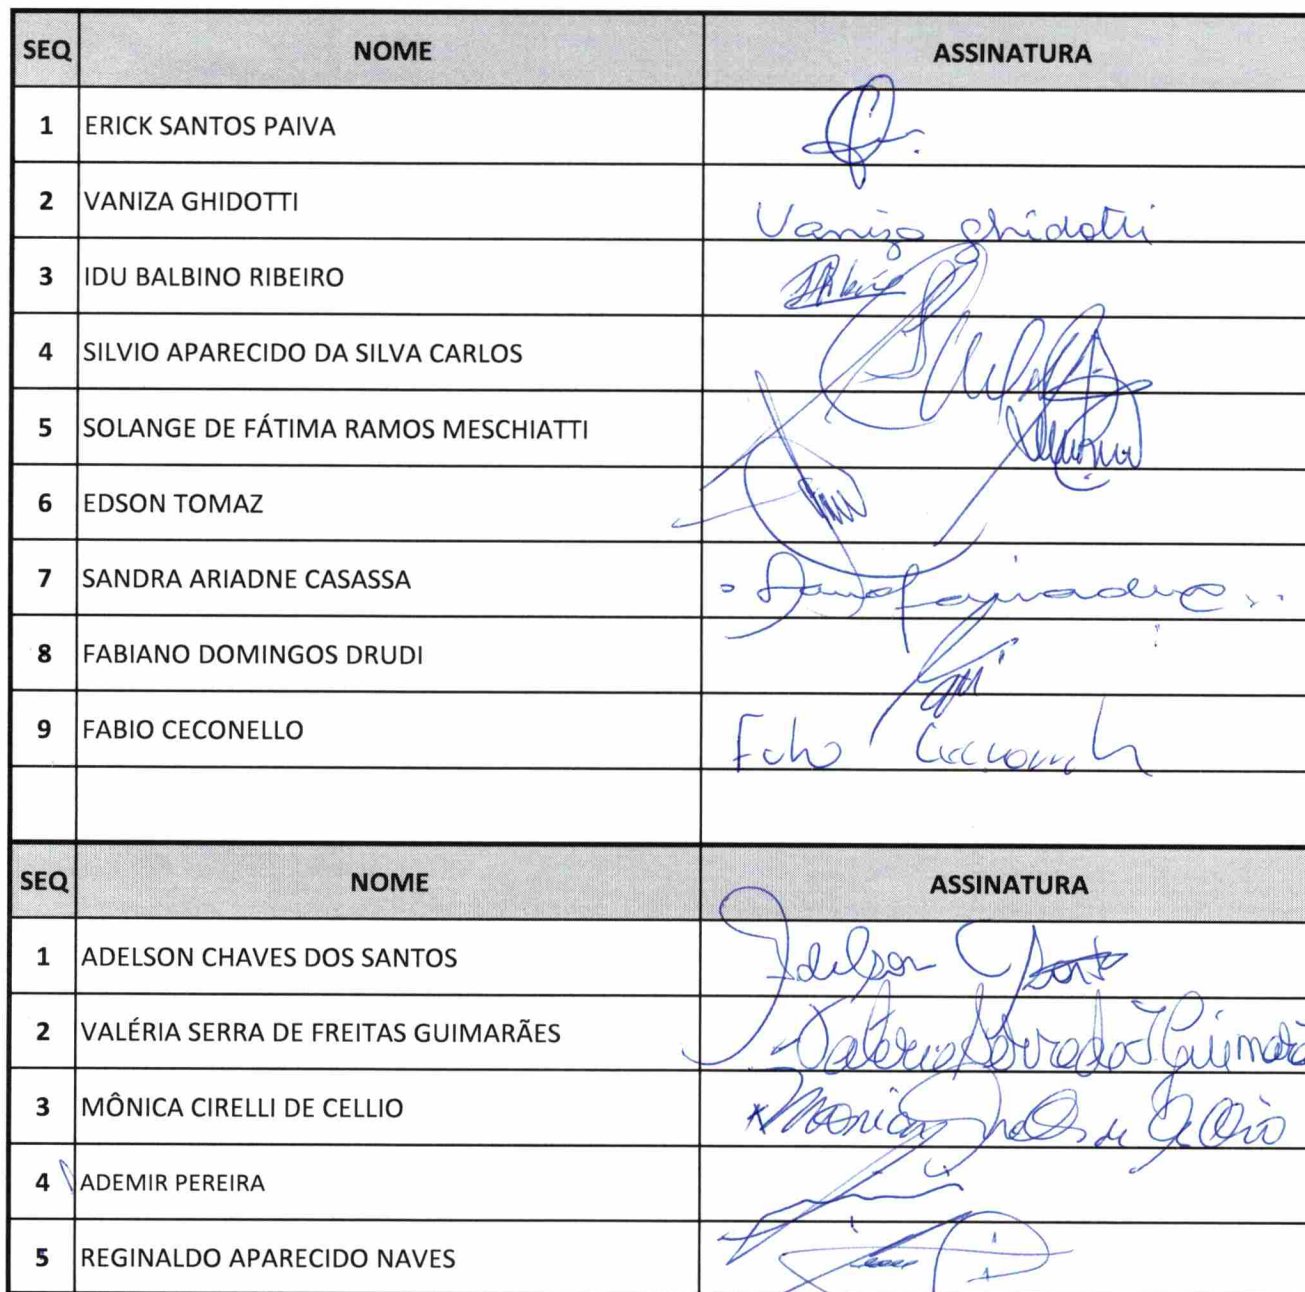 SEQ NOME ASSINATURA
1 ERICK SANTOS PAIVA
2 VANIZA GHIDOTTI Vaniza Ghidotti
3 IDU BALBINO RIBEIRO
4 SILVIO APARECIDO DA SILVA CARLOS
5 SOLANGE DE FÁTIMA RAMOS MESCHIATTI
6 EDSON TOMAZ
7 SANDRA ARIADNE CASASSA
8 FABIANO DOMINGOS DRUDI
9 FABIO CECONELLO
SEQ NOME ASSINATURA
1 ADELSON CHAVES DOS SANTOS Adelson
2 VALÉRIA SERRA DE FREITAS GUIMARÃES Valéria
3 MÔNICA CIRELLI DE CELLIO Monica de Cellio
4 ADEMIR PEREIRA
5 REGINALDO APARECIDO NAVES